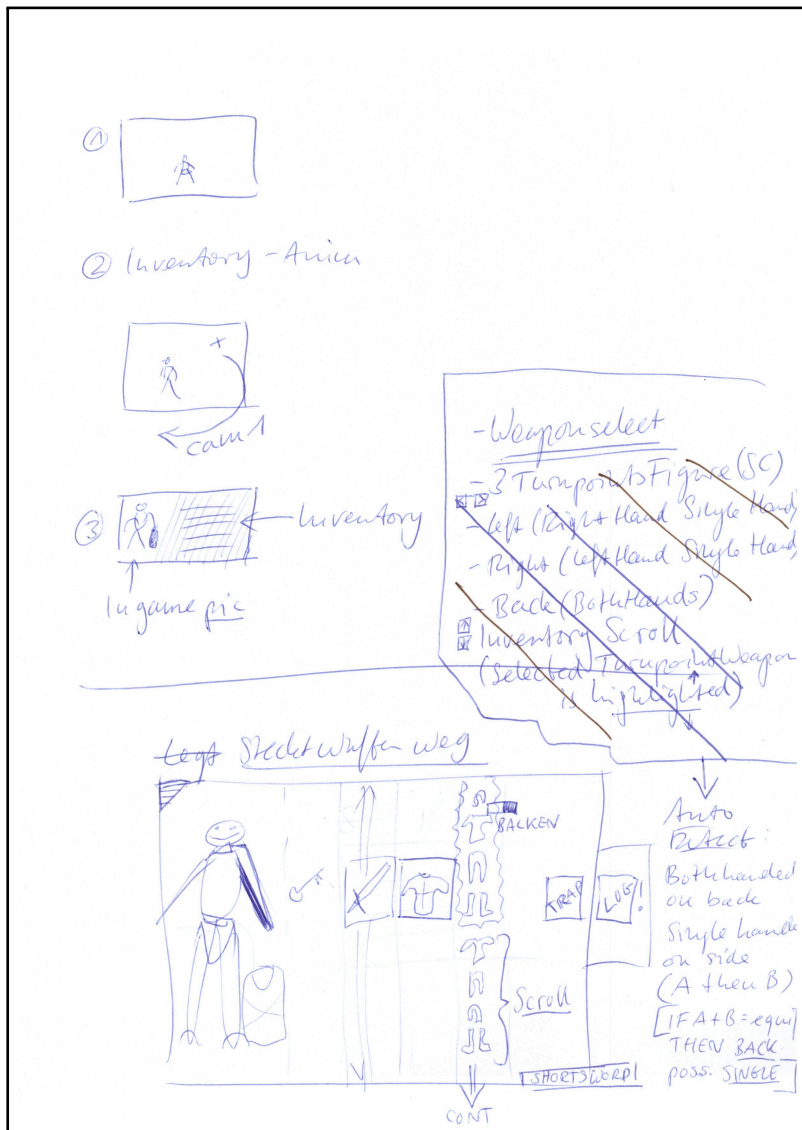 ①
② Inventory - Anim
cam 1
③
Inventory
Ingame pic
- Weaponselect
- 3 Turnpoints Figure (SC)
- left (Right Hand Single Hand)
- Right (Left Hand Single Hand)
- Back (Both Hands)
Inventory Scroll
(Selected Turnpoint Weapon
is highlighted)
Legt Steckt Waffen weg
BACKEN
TRAP
LOG!
Scroll
SHORTSWORD
CONT
Auto
Detect:
Bothhanded
on back
Single hande
on side
(A then B)
[IF A+B = equi
THEN BACK
poss. SINGLE]